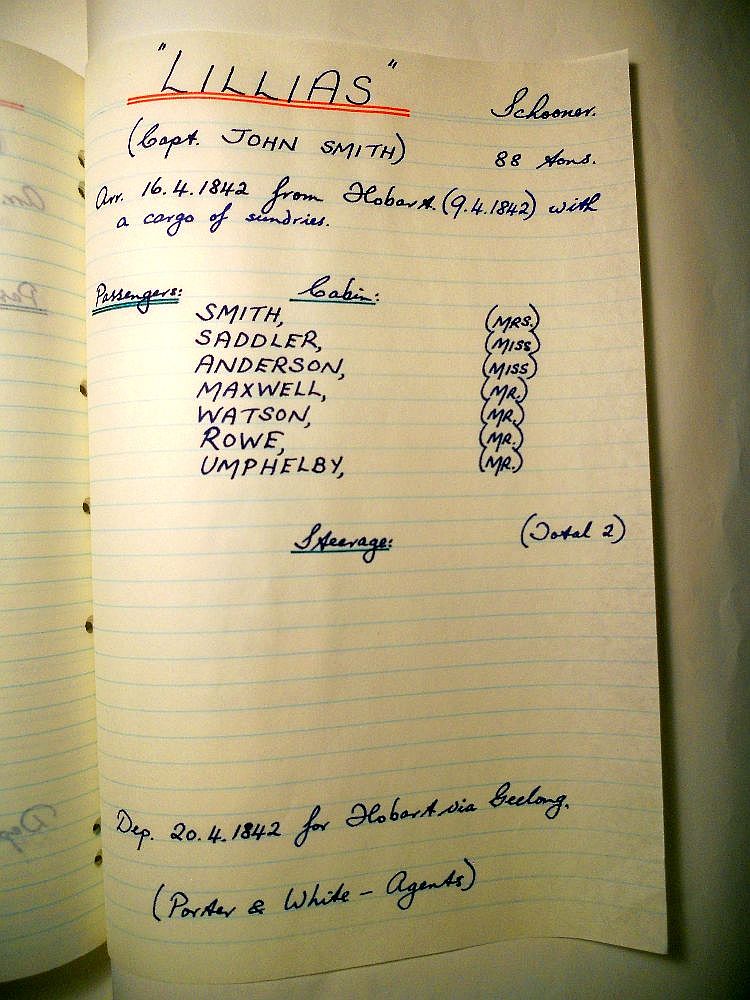 "LILLIAS"
Schooner.
(Capt. JOHN SMITH)
88 tons.
Arr. 16.4.1842 from Hobart. (9.4.1842) with
a cargo of sundries.
Passengers: Cabin:
SMITH, (MRS.)
SADDLER, (MISS)
ANDERSON, (MISS)
MAXWELL, (MR.)
WATSON, (MR.)
ROWE, (MR.)
UMPHELBY, (MR.)
Steerage: (Total 2)
Dep. 20.4.1842 for Hobart via Geelong.
(Porter & White - Agents)